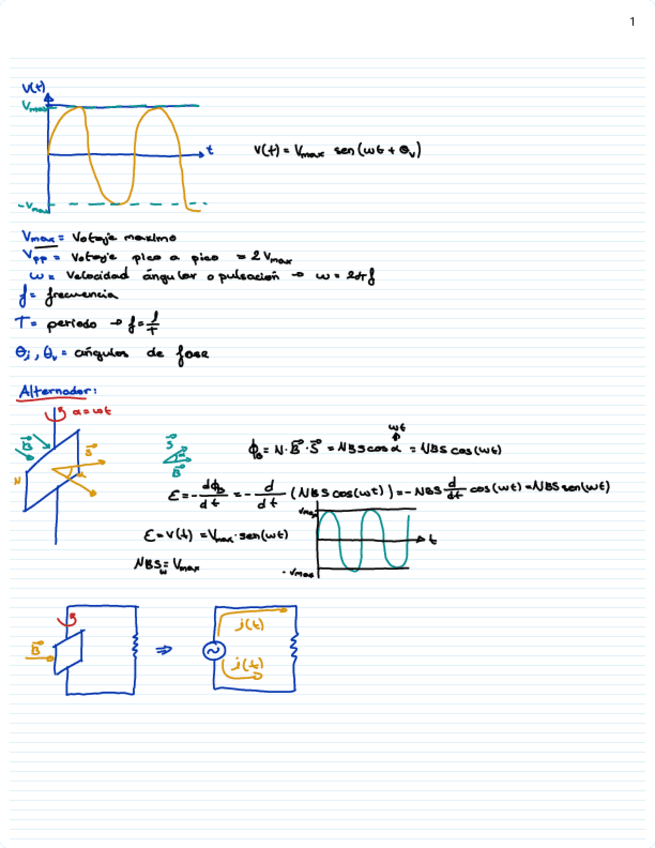 1
V(t)
Vmax
t
V(t) = Vmax sen(wt + θv)
-Vmax
Vmax = Votaje maximo
Vpp = Votaje pico a pico = 2Vmax
ω = Velocidad ángular o pulsación → ω = 2πf
f = frecuencia
T = periodo → f = 1/T
θi, θv = ángulos de fase
Alternador:
α = ωt
B S
N α
S α B
ωt
ϕB = N · B · S = NBS cos α = NBS cos(ωt)
ε = - dϕB/dt = - d/dt (NBS cos(ωt)) = - NBS d/dt cos(ωt) = NBS sen(ωt)
Vmax
t
-Vmax
ε = V(t) = Vmax · sen(ωt)
NBSω = Vmax
B
⇒
~
j(t)
j(t)